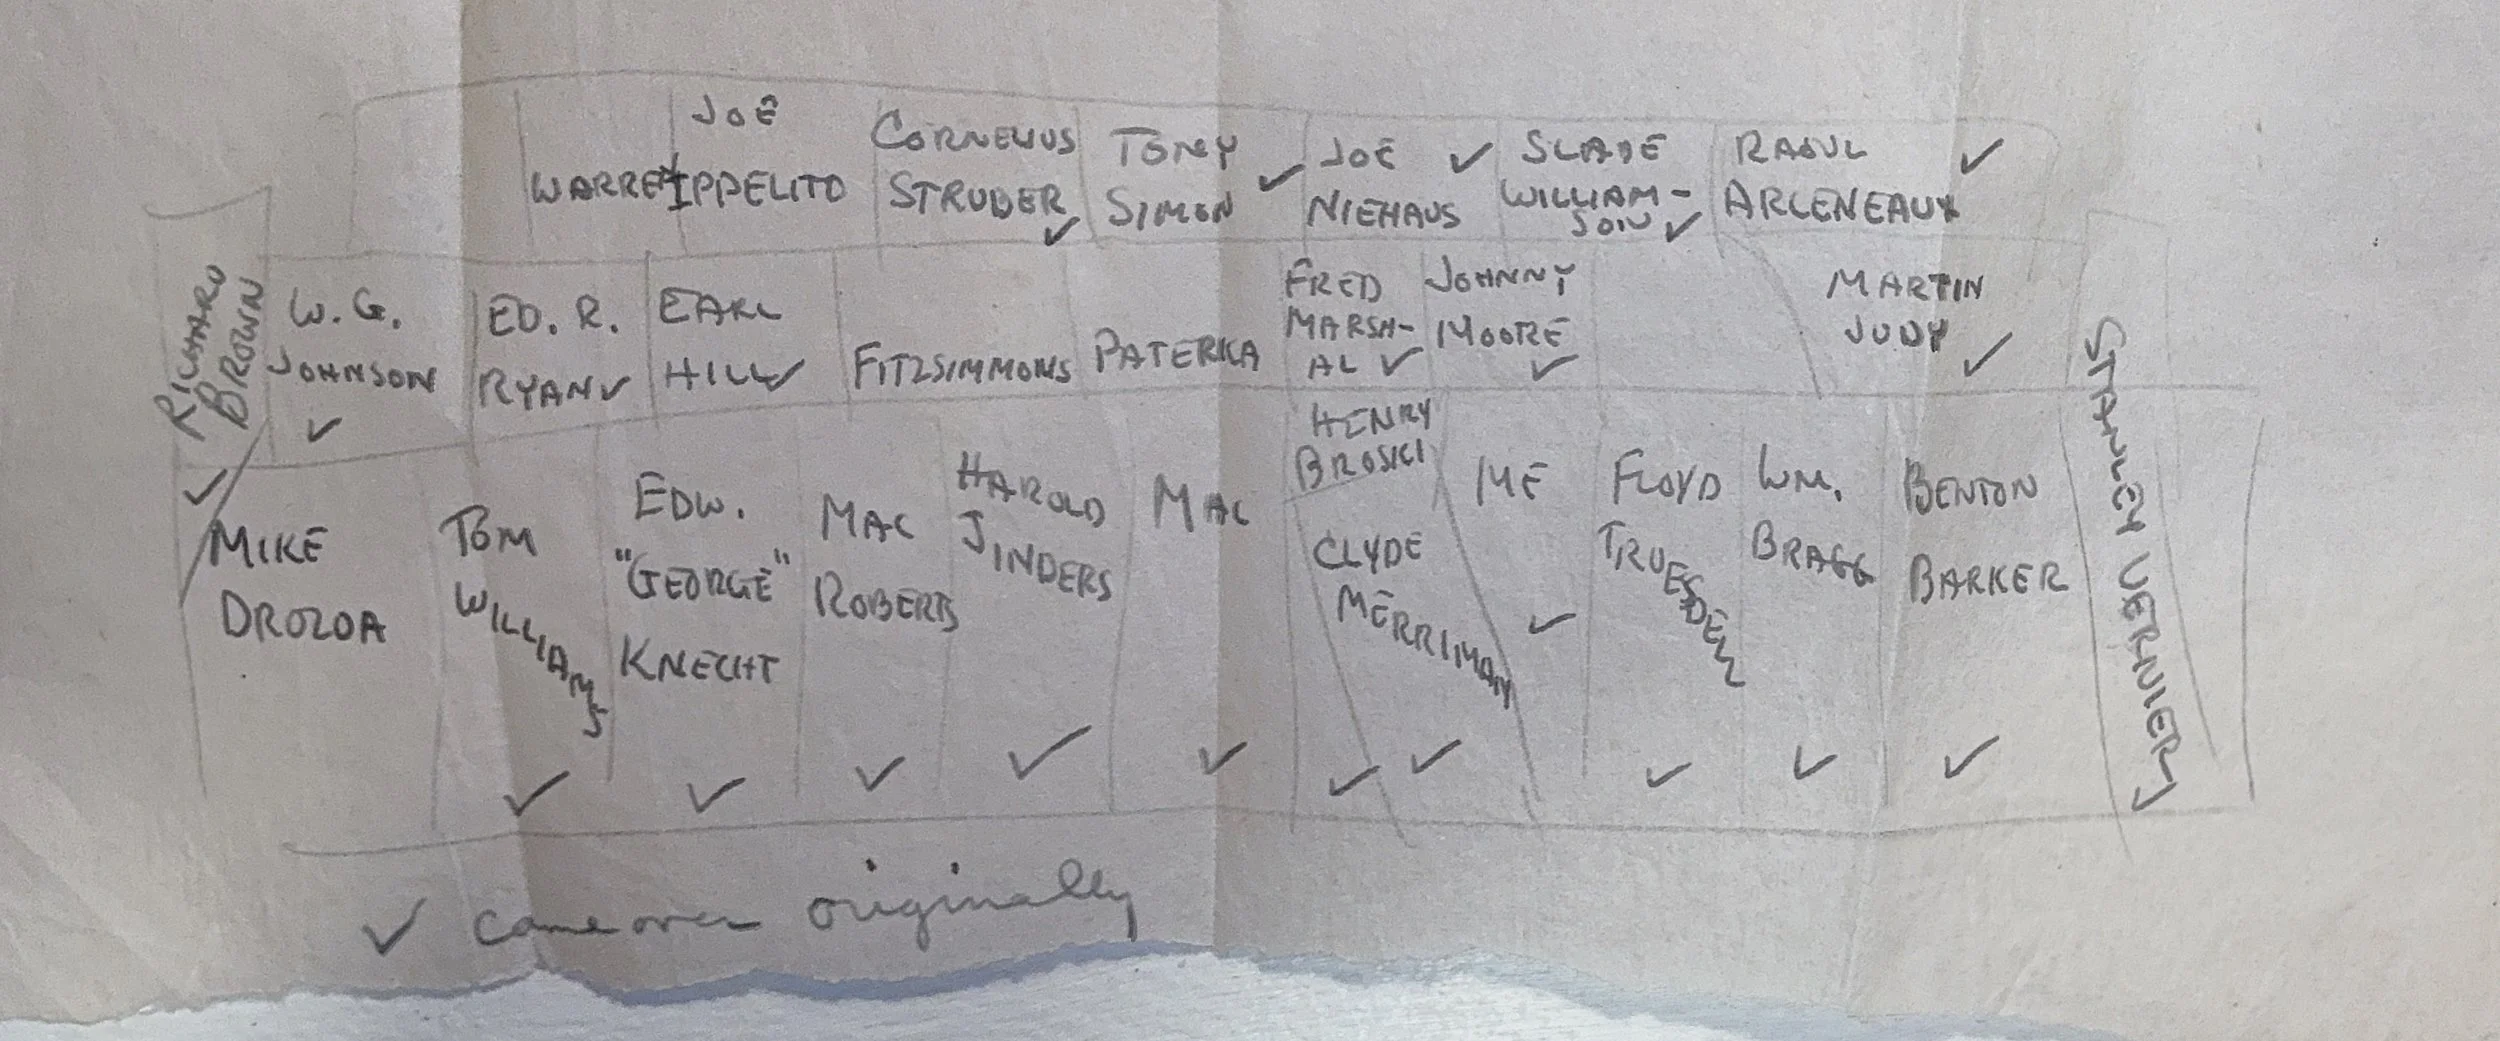 JOE
WARREN IPPELITO
CORNELIUS
STRUBER ✓
TONY
SIMON ✓
JOE ✓
NIEHAUS
SLADE
WILLIAM-
SON ✓
RAOUL ✓
ARCENEAUX
RICHARD
BROWN ✓
W. G.
JOHNSON
✓
ED. R.
RYAN ✓
EARL
HILL ✓
FITZSIMMONS
PATERKA
FRED
MARSH-
AL ✓
JOHNNY
MOORE
✓
MARTIN
JUDY ✓
MIKE
DROZDA
TOM
WILLIAMS
✓
EDW.
"GEORGE"
KNECHT
✓
MAC
ROBERTS
✓
HAROLD
JINDERS
✓
MAC
✓
HENRY
BROSKI
✓
CLYDE
MERRIMAN
✓
ME
✓
FLOYD
TRUESDELL
✓
WM.
BRAGG
✓
BENTON
BARKER
✓
STANLEY VERNIER ✓
✓ came over originally